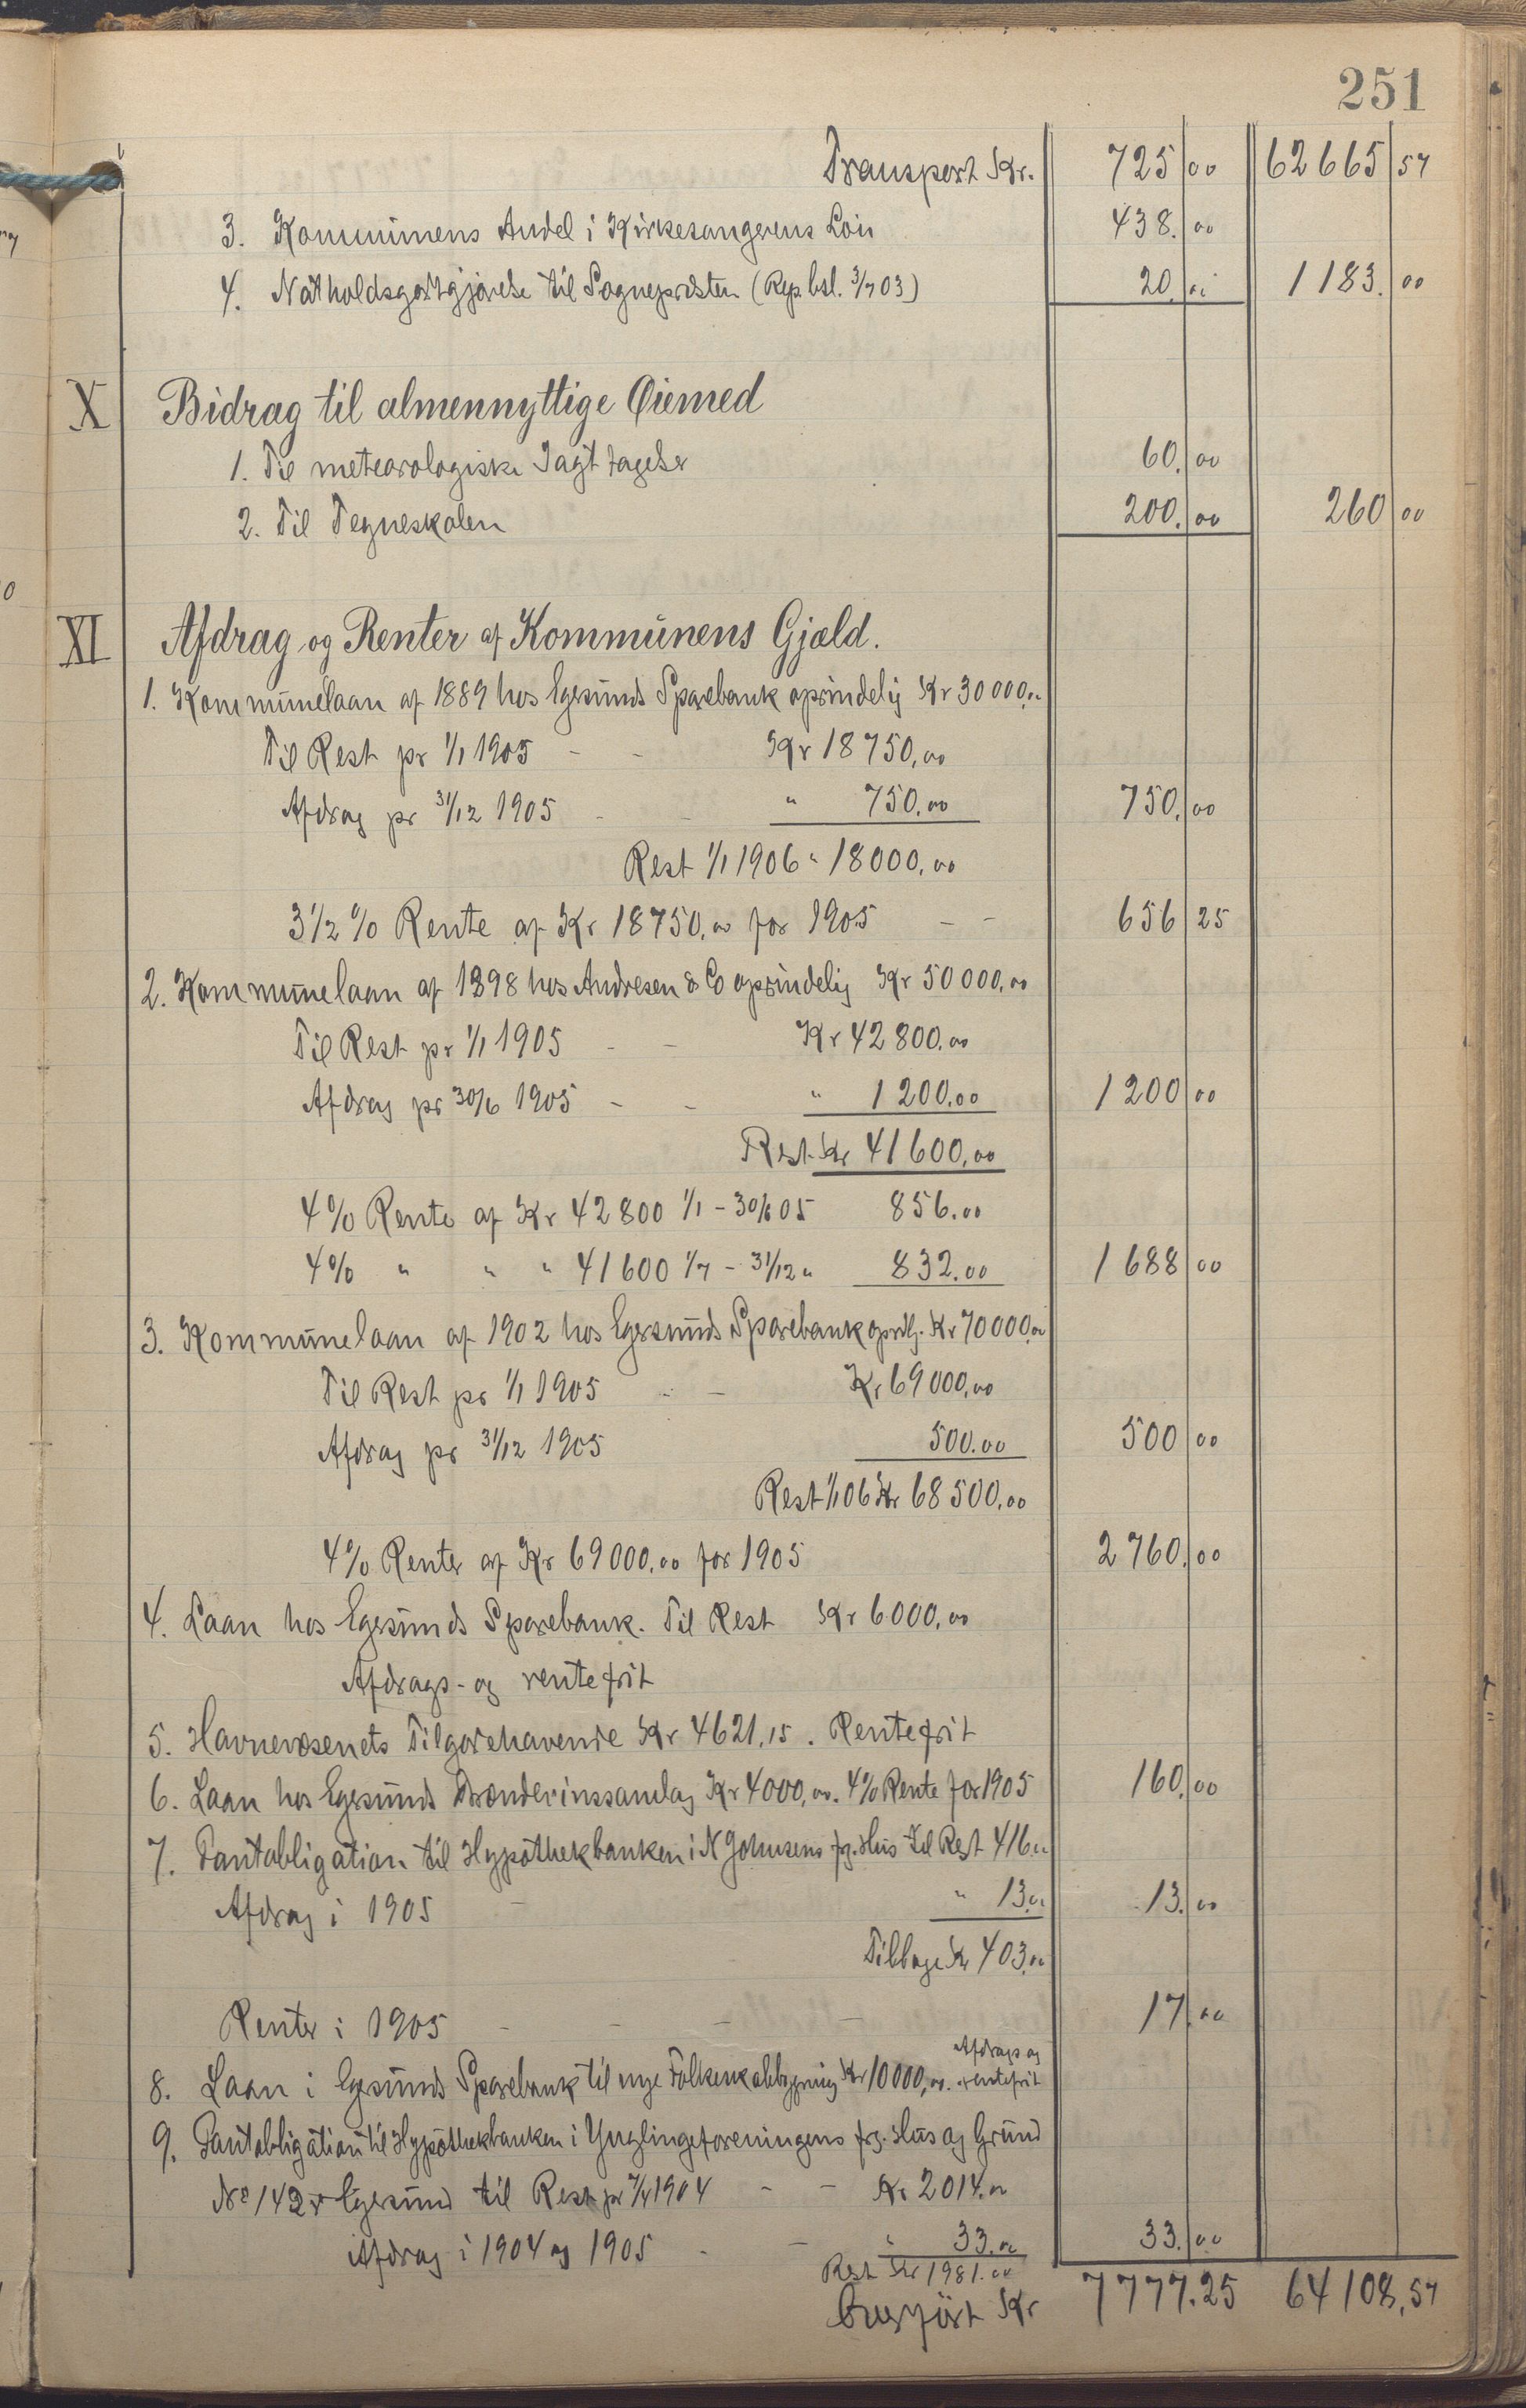 251
Transport Kr. 725 00 62665 57
3. Kommunens Andel i Kirkesangerens Løn 438. 00
4. Natholdsgodtgjørelse til Sognepresten (Rep.bsl. 3/7 03) 20. 00 1183. 00
X Bidrag til almennyttige Øiemed
1. Til meteorologiske Iagttagelser 60. 00
2. Til Tegneskolen 200. 00 260 00
XI Afdrag og Renter af Kommunens Gjæld.
1. Kommunelaan af 1889 hos Egersunds Sparebank oprindelig Kr 30000,00
Til Rest pr 1/1 1905 - - Kr 18750,00
Afdrag pr 31/12 1905 - - " 750.00 750. 00
Rest 1/1 1906 " 18000,00
3 1/2 % Rente af Kr 18750,00 for 1905 - - 656 25
2. Kommunelaan af 1898 hos Andresen & Co oprindelig Kr 50000,00
Til Rest pr 1/1 1905 - - Kr 42800.00
Afdrag pr 30/6 1905 - - " 1200.00 1200 00
Rest Kr 41600,00
4% Rente af Kr 42800 1/1 - 30/6 05 856.00
4% " " " 41600 1/7 - 31/12 " 832.00 1688 00
3. Kommunelaan af 1902 hos Egersunds Sparebank oprdl. Kr 70000,00
Til Rest pr 1/1 1905 - - Kr 69000,00
Afdrag pr 31/12 1905 500.00 500 00
Rest 1/1 06 Kr 68500,00
4% Renter af Kr 69000,00 for 1905 2760. 00
4. Laan hos Egersunds Sparebank. Til Rest Kr 6000,00
Afdrags- og rentefrit
5. Havnevæsenets Tilgodehavende Kr 4621,15. Rentefrit
6. Laan hos Egersunds Brænderinssamlag Kr 4000,00. 4% Rente for 1905 160. 00
7. Pantobligation til Hypothekbanken i N Johnsens frg. Hus til Rest 416.00
Afdrag i 1905 - " 13.00 13. 00
Tilbage Kr 403.00
Renter i 1905 - - - - 17. 00
8. Laan i Egersunds Sparebank til nye Folkeskolebygning Kr 10000,00. Afdrags og rentefrit
9. Pantobligation til Hypothekbanken i Ynglingeforeningens frg. Hus og Grund
No 142 Egersund til Rest pr 1904 - - Kr 2014.00
Afdrag i 1904 og 1905 - - " 33.00 33. 00
Rest Kr 1981.00
Overført Kr 7777.25 64108,57